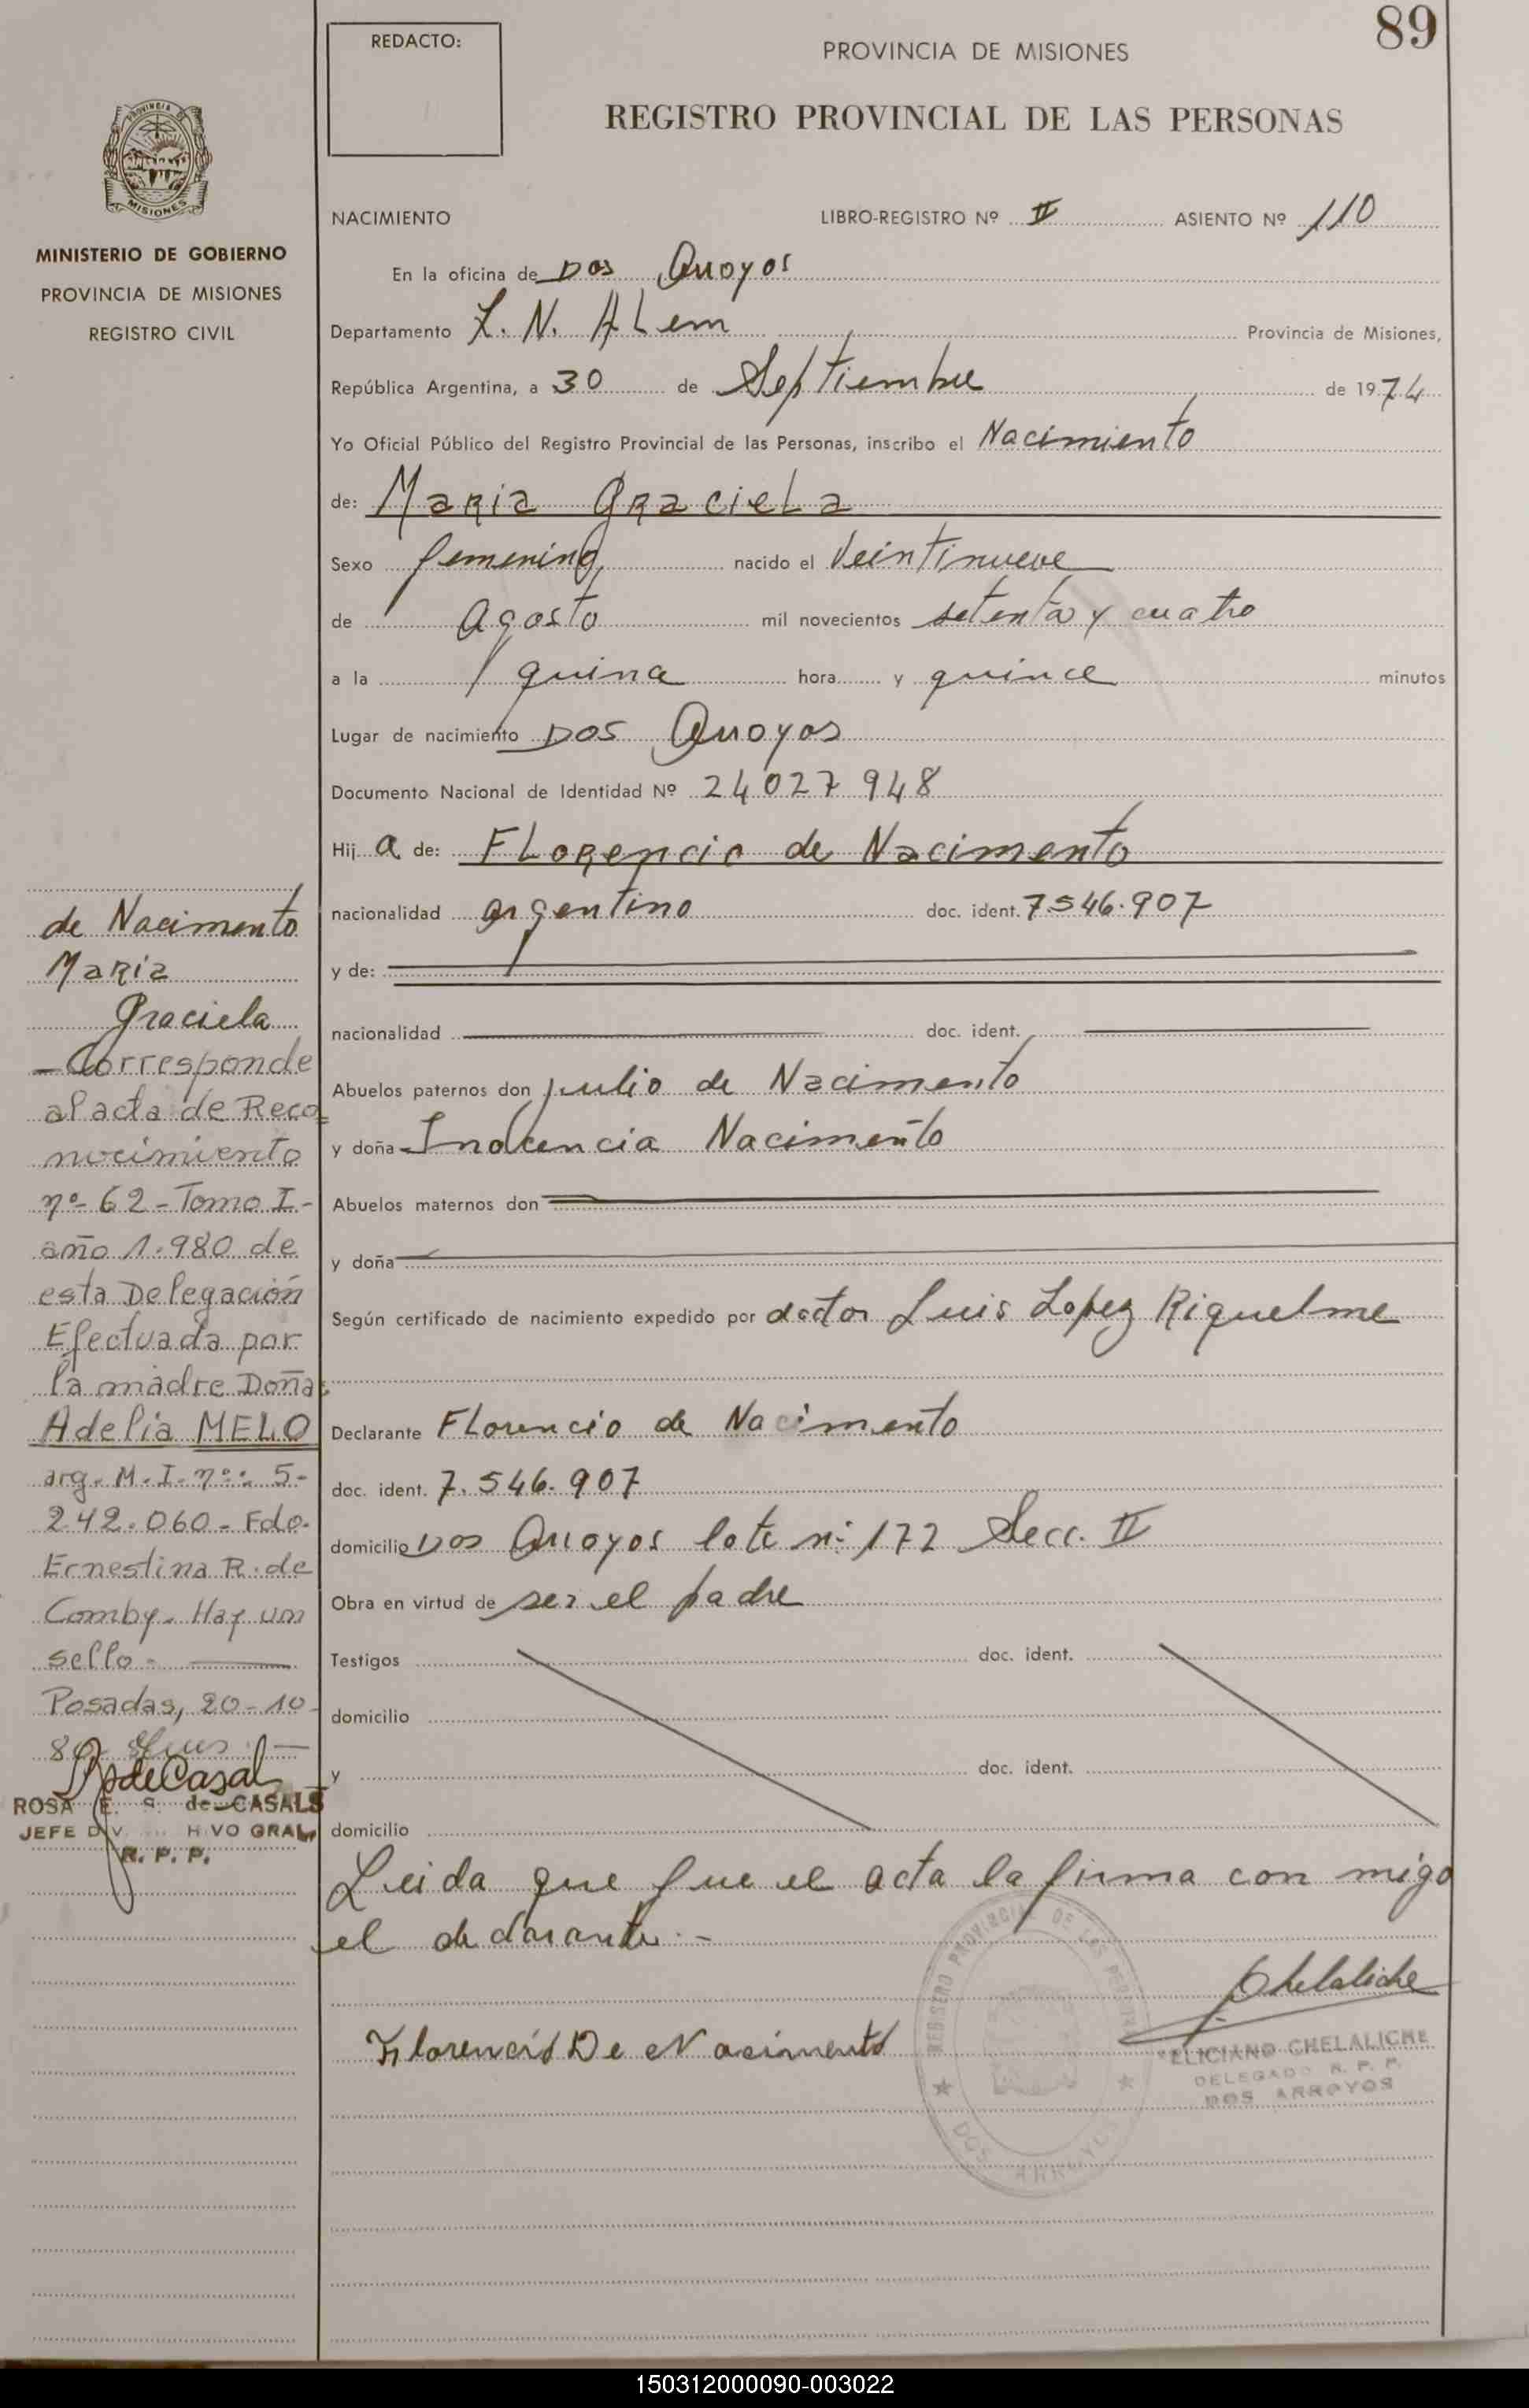 89
REDACTO:
PROVINCIA DE MISIONES
REGISTRO PROVINCIAL DE LAS PERSONAS
PROVINCIA DE
MISIONES
MINISTERIO DE GOBIERNO
PROVINCIA DE MISIONES
REGISTRO CIVIL
NACIMIENTO LIBRO-REGISTRO Nº II ASIENTO Nº 110
En la oficina de Dos Arroyos
Departamento L. N. Alem Provincia de Misiones,
República Argentina, a 30 de Septiembre de 1974
Yo Oficial Público del Registro Provincial de las Personas, inscribo el Nacimiento
de: Maria Graciela
Sexo femenino nacido el Veintinueve
de Agosto mil novecientos setenta y cuatro
a la quina hora y quince minutos
Lugar de nacimiento Dos Arroyos
Documento Nacional de Identidad Nº 24 027 948
Hij a de: Florencio de Nacimento
nacionalidad argentino doc. ident. 7546.907
y de:
nacionalidad doc. ident.
Abuelos paternos don Julio de Nacimento
y doña Inocencia Nacimento
Abuelos maternos don
y doña
Según certificado de nacimiento expedido por doctor Luis Lopez Riquelme
Declarante Florencio de Nacimento
doc. ident. 7.546.907
domicilio Dos Arroyos lote nº 172 Secc. II
Obra en virtud de ser el padre
Testigos doc. ident.
domicilio
y doc. ident.
domicilio
Leida que fue el acta la firma con migo
el declarante.-
Florencio De Nacimento
Chelaliche
FELICIANO CHELALICHE
DELEGADO R. P. P.
DOS ARROYOS
REGISTRO PROVINCIAL DE LAS PERSONAS
DOS ARROYOS
de Nacimento
Maria
Graciela
- Corresponde
al acta de Reco
nocimiento
nº 62 - Tomo I.-
año 1.980 de
esta Delegación
Efectuada por
la madre Doña
Adelia MELO
arg. M. I. nº: 5.-
242.060 - Fdo.
Ernestina R. de
Comby. Hay un
sello.-
Posadas, 20-10-
80
R de Casals
ROSA E. de CASALS
JEFE DIV. GRAL
R. P. P.
150312000090-003022